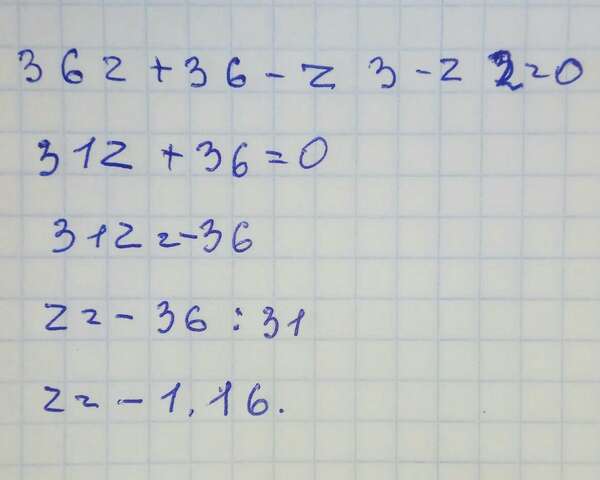 36z + 36 - z 3 - z 2 = 0
31z + 36 = 0
31z = -36
z = - 36 : 31
z = - 1,16.